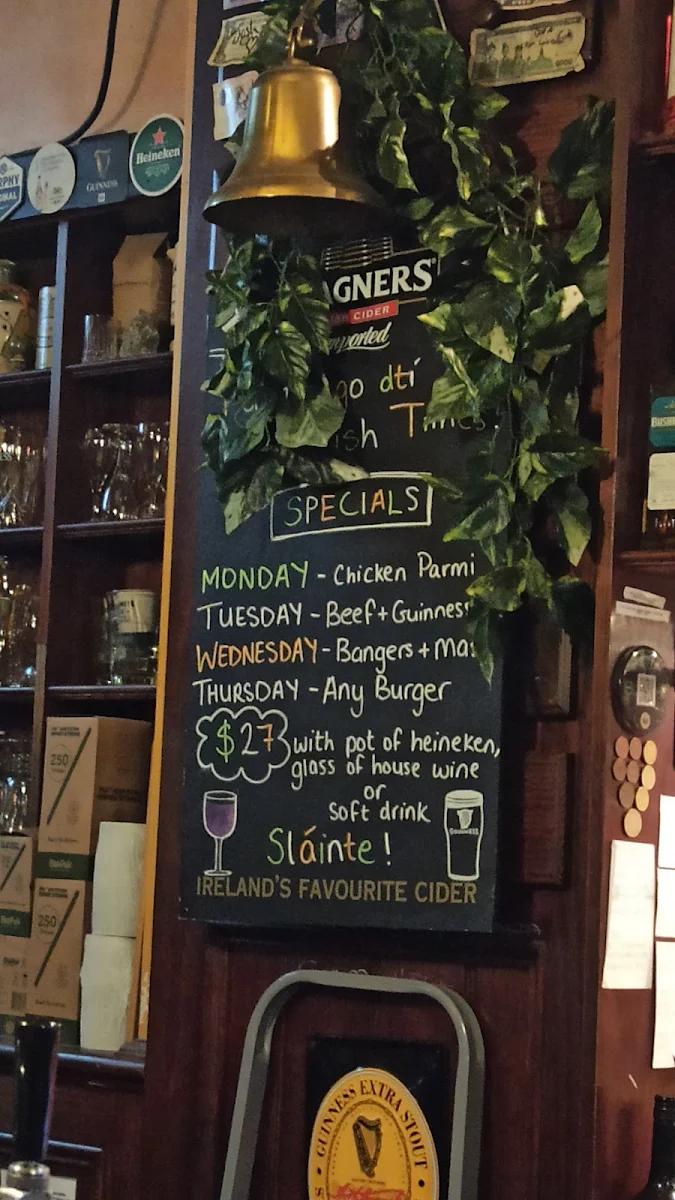 Heineken
GUINNESS
AGNERS
CIDER
go dtí
SPECIALS
MONDAY - Chicken Parmi
TUESDAY - Beef + Guinness
WEDNESDAY - Bangers + Mas
THURSDAY - Any Burger
$27 with pot of heineken,
glass of house wine
or
soft drink
GUINNESS
Sláinte!
IRELAND'S FAVOURITE CIDER
250
250
GUINNESS EXTRA STOUT